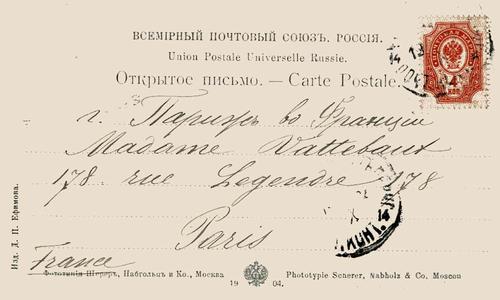 ВСЕМІРНЫЙ ПОЧТОВЫЙ СОЮЗЪ. РОССІЯ.
Union Postale Universelle Russie.
Открытое письмо. — Carte Postale.
4
КОП
г. Парижъ во Франціи
Madame Vattebaut
178 rue Legendre 178
Paris
France
Изд. Д. П. Ефимова.
Фототипія Шереръ, Набгольцъ и Ко., Москва
1904.
Phototypie Scherer, Nabholz & Co. Moscou